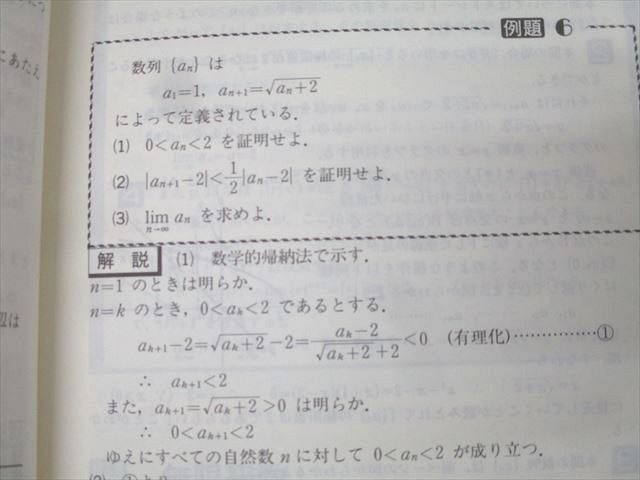 例題 6
にあたえ
数列 {aₙ} は
a₁=1, aₙ₊₁=√(aₙ+2)
によって定義されている.
(1) 0<aₙ<2 を証明せよ.
(2) |aₙ₊₁−2|<1/2|aₙ−2| を証明せよ.
(3) lim_{n→∞} aₙ を求めよ.
解 説 (1) 数学的帰納法で示す.
n=1 のときは明らか.
n=k のとき, 0<aₖ<2 であるとする.
aₖ₊₁−2=√(aₖ+2)−2=(aₖ−2)/(√(aₖ+2)+2)<0 (有理化)……………①
∴ aₖ₊₁<2
また, aₖ₊₁=√(aₖ+2)>0 は明らか.
∴ 0<aₖ₊₁<2
ゆえにすべての自然数 n に対して 0<aₙ<2 が成り立つ.
(2) ①より
辺は